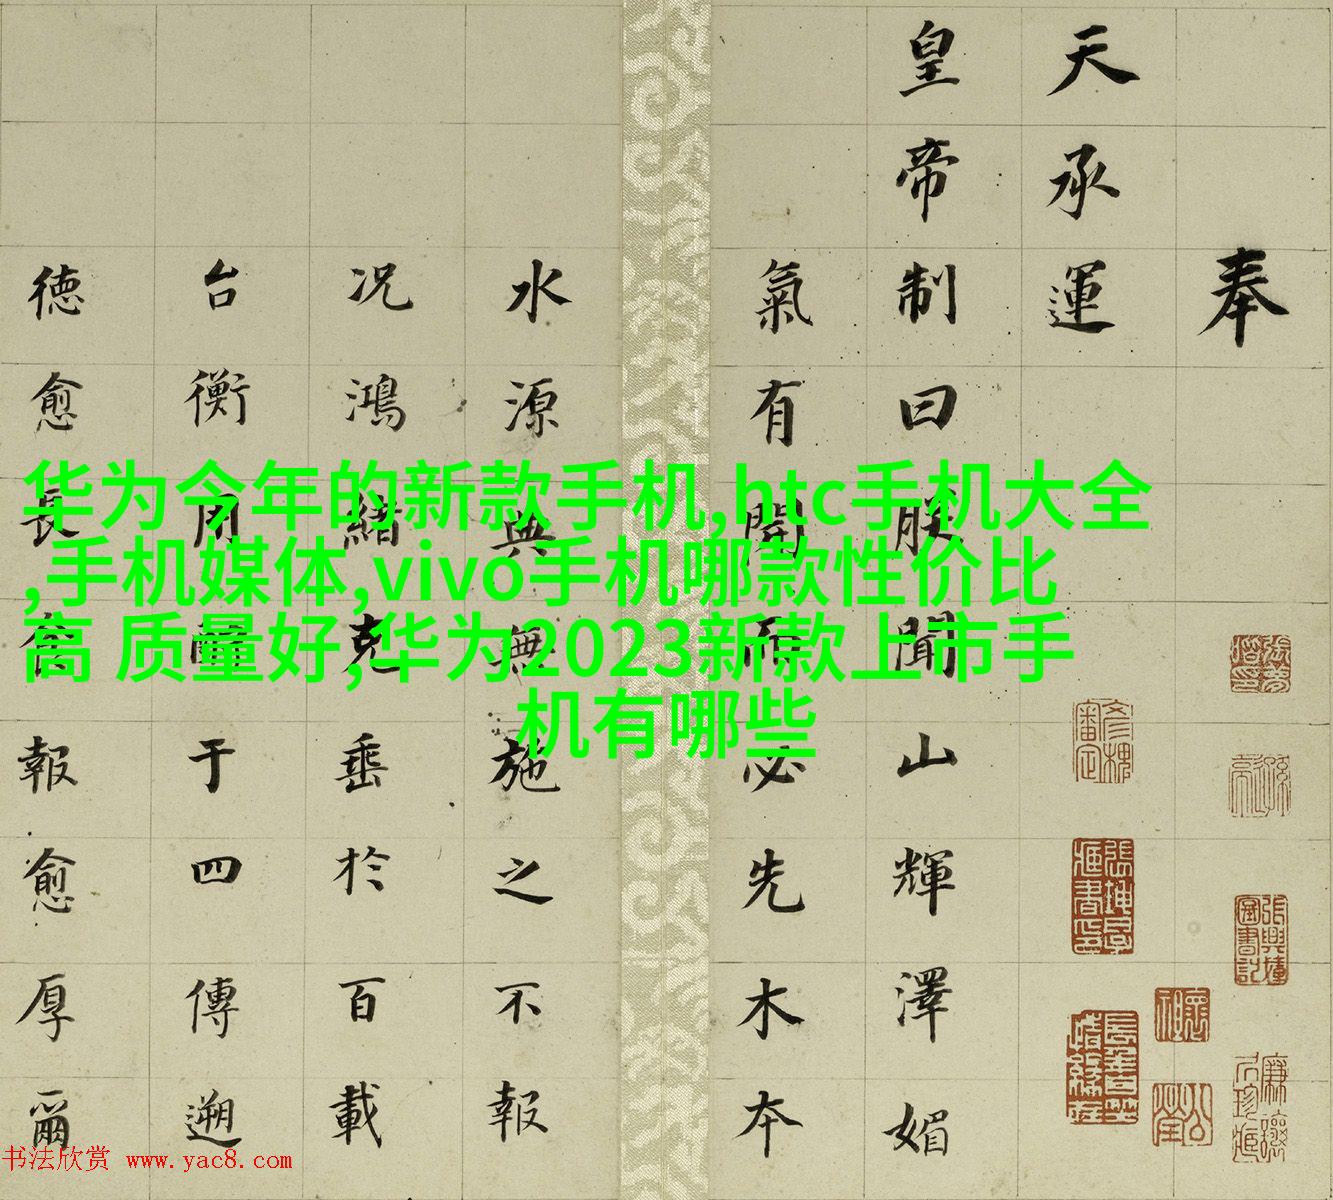 奉
天承運
皇帝制曰朕聞山輝澤媚
氣有開而必先木本
水源典無施之不報
况鴻緒克垂於百載
台衡用于四傳遡
德愈長食報愈厚爾
华为今年的新款手机,htc手机大全
,手机媒体,vivo手机哪款性价比
高 质量好,华为2023新款上市手
机有哪些
书法欣赏 www.yac8.com